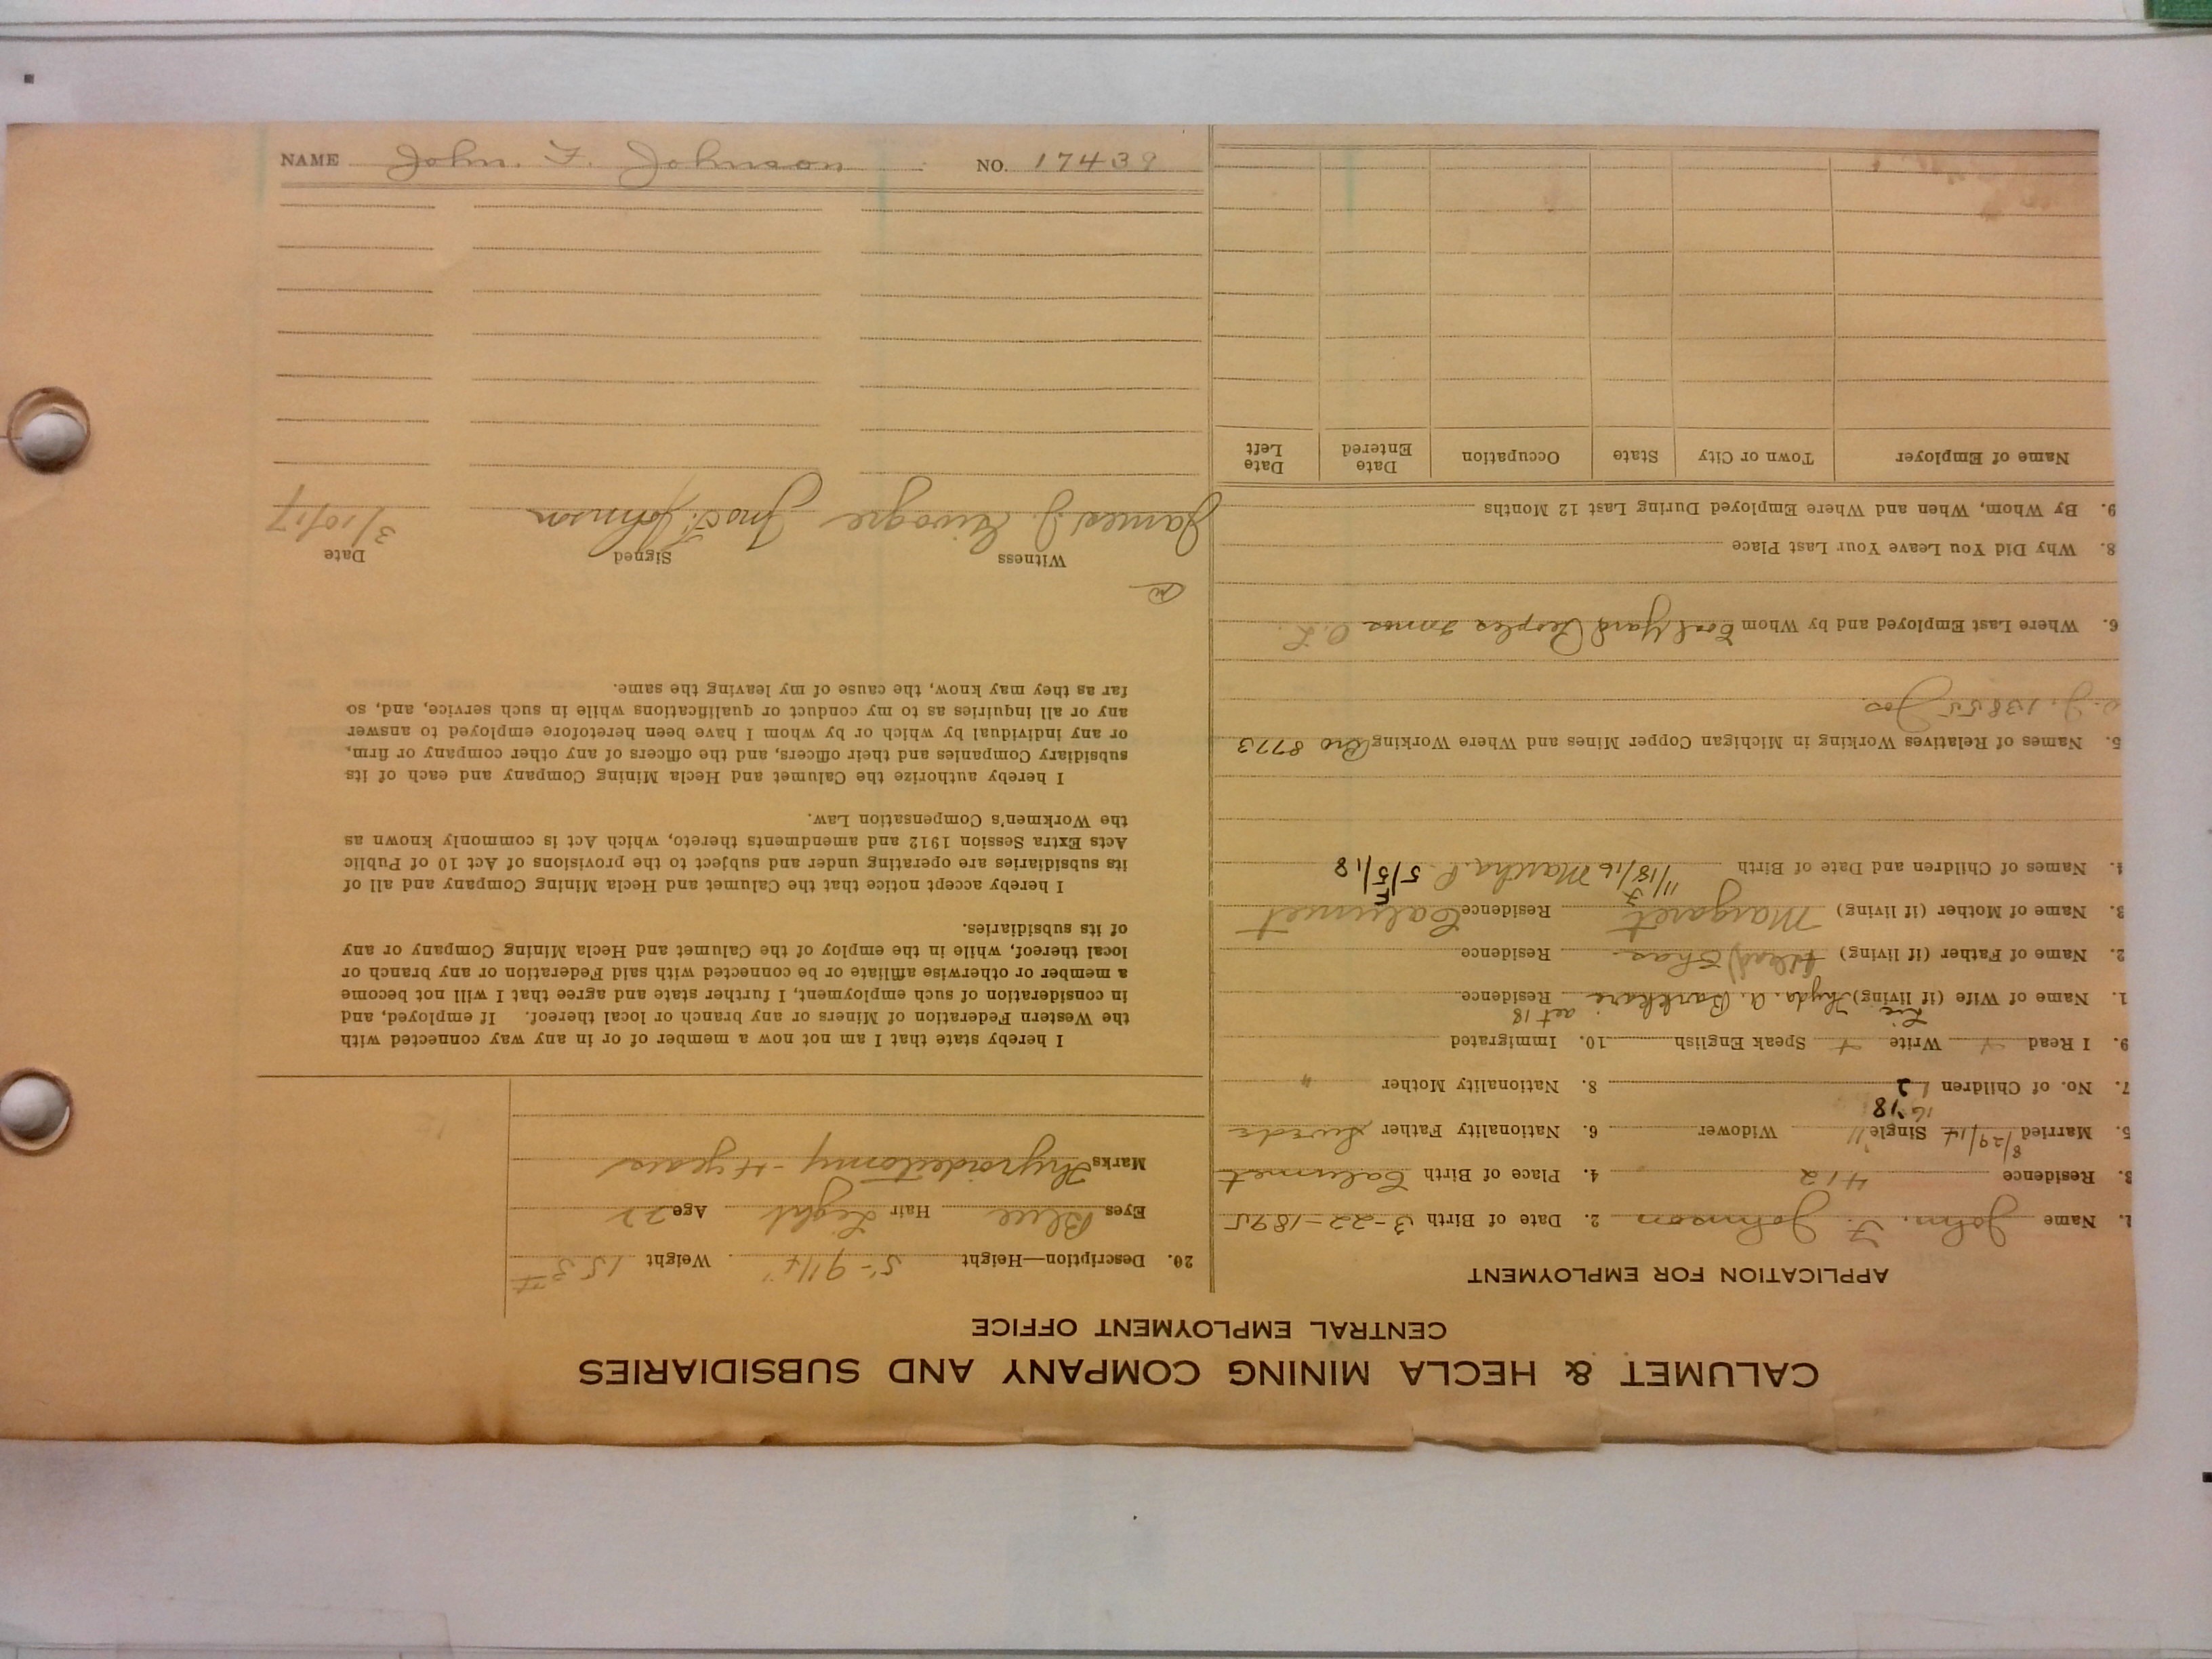 CALUMET & HECLA MINING COMPANY AND SUBSIDIARIES
CENTRAL EMPLOYMENT OFFICE
APPLICATION FOR EMPLOYMENT
1. Name John. F. Johnson 2. Date of Birth 3-22-1895
3. Residence 412 4. Place of Birth Calumet
5. Married 8/29/14 Single Widower 6. Nationality Father Swede
16 18
7. No. of Children 2 8. Nationality Mother "
9. I Read + Write + Speak English 10. Immigrated
1. Name of Wife (if living) Hyda. A. Residence
aet 18
2. Name of Father (if living) (dead) Chas Residence
3. Name of Mother (if living) Margaret Residence Calumet
4. Names of Children and Date of Birth 11/18/16 Martha 5/5/18
5. Names of Relatives Working in Michigan Copper Mines and Where Working Bro 8773
13855 Jos.
6. Where Last Employed and by Whom Coal Yard Peoples
8. Why Did You Leave Your Last Place
9. By Whom, When and Where Employed During Last 12 Months
Name of Employer Town or City State Occupation Date Entered Date Left
20. Description—Height 5'-9 1/4" Weight 153#
Eyes Blue Hair Light Age 22
Marks Thyroidectomy - 4 years
I hereby state that I am not now a member of or in any way connected with
the Western Federation of Miners or any branch or local thereof. If employed, and
in consideration of such employment, I further state and agree that I will not become
a member or otherwise affiliate or be connected with said Federation or any branch or
local thereof, while in the employ of the Calumet and Hecla Mining Company or any
of its subsidiaries.
I hereby accept notice that the Calumet and Hecla Mining Company and all of
its subsidiaries are operating under and subject to the provisions of Act 10 of Public
Acts Extra Session 1912 and amendments thereto, which Act is commonly known as
the Workmen's Compensation Law.
I hereby authorize the Calumet and Hecla Mining Company and each of its
subsidiary Companies and their officers, and the officers of any other company or firm,
or any individual by which or by whom I have been heretofore employed to answer
any or all inquiries as to my conduct or qualifications while in such service, and, so
far as they may know, the cause of my leaving the same.
Witness Signed Date
James J. Jno F. Johnson 3/10/17
NAME John. F. Johnson NO. 17439